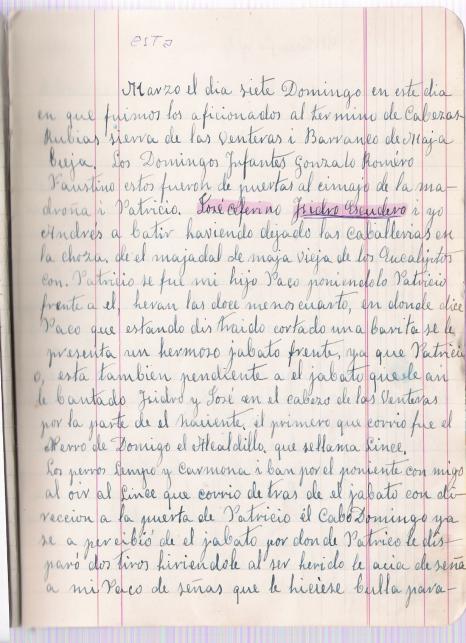 esta
Marzo el dia siete Domingo en este dia
en que fuimos los aficionados al termino de Cabezas
Rubias sierra de las Venteras i Barranco de Maja
Vieja. Los Domingos Infantes Gonzalo Romero
Faustino estos fueron de puertas al cimajo de la ma-
droña i Patricio. José Isidro Escudero i yo
Andres a batir haviendo dejado las caballerias en
la choza. de el majadal de maja vieja de los Eucaliptos
con. Patricio se fue mi hijo Paco poniendolo Patricio
frente a el, heran las doce menos cuarto, en donde dice
Paco que estando distraido cortado una barita se le
presenta un hermoso jabato frente, ya que Patrici
o, esta tambien pendiente a el jabato que de an
le bantado Isidro y José en el cabezo de las Venteras
por la parte de el naciente. el primero que corrio fue el
Perro de Domigo el Alcaldillo. que se llama Lince.
Los perros Lempo y Carmona i ban por el poniente con migo
al oir al Lince que corrio de tras de el jabato con di-
reccion a la puerta de Patricio el Cabo Domingo ya
se a percibió de el jabato por don de Patrico le dis-
paró dos tiros hiriendole al ser herido le acia de seña
a mi Paco de señas que le hiciese bulla para-